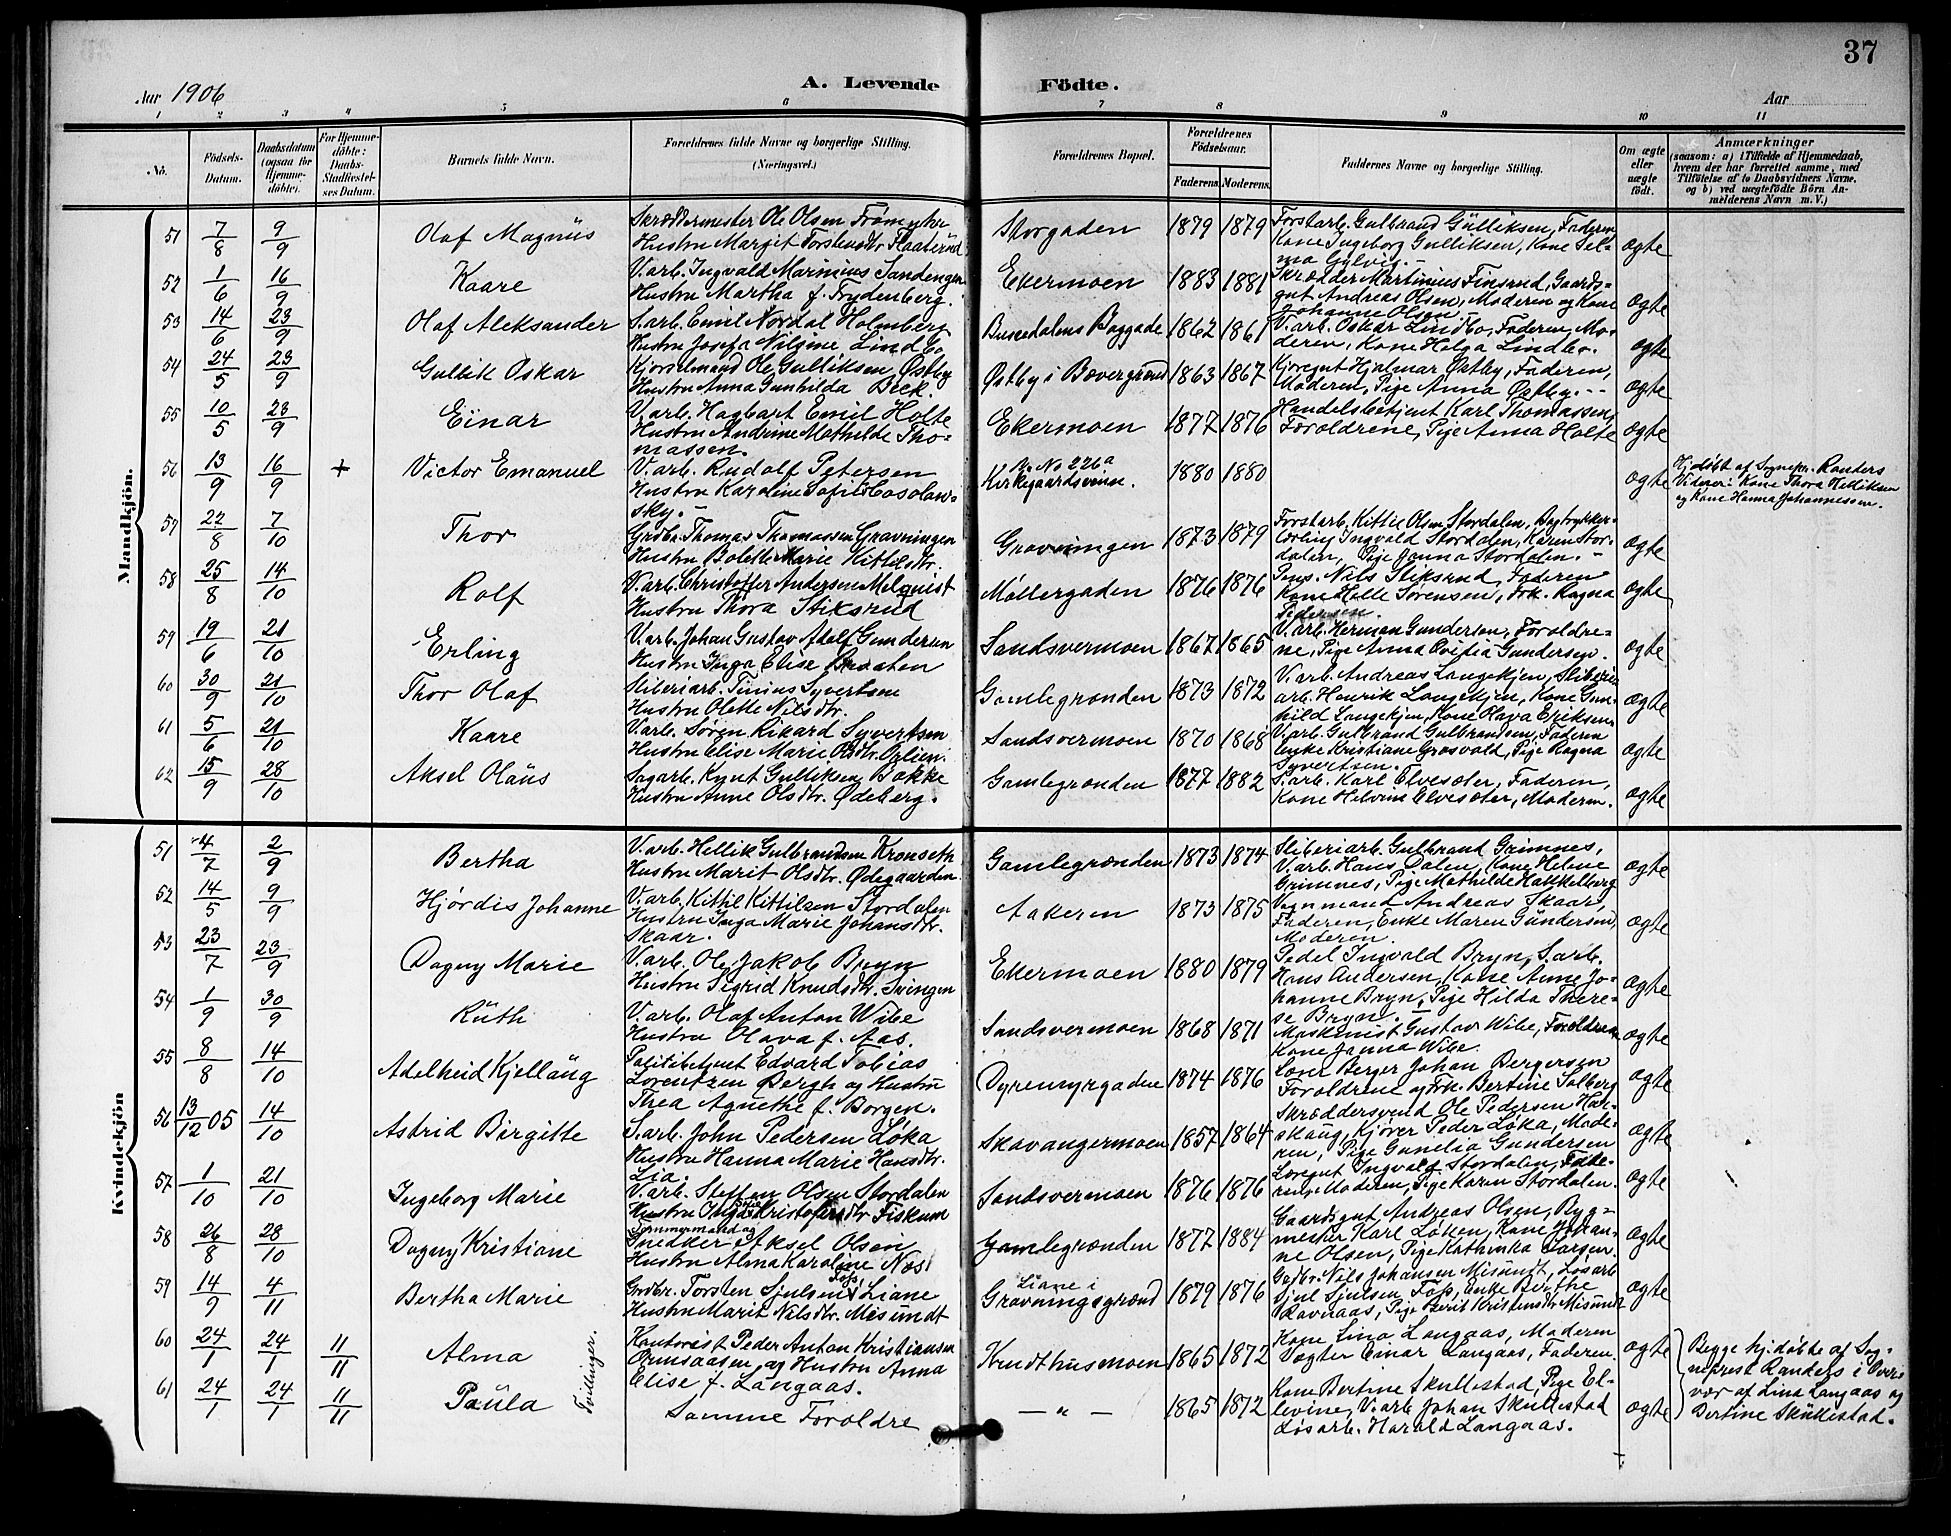 37
Aar 1906
A. Levende
Födte.
Aar
1 2 3 4 5 6 7 8 9 10 11
No.
Födsels-
Datum.
Daabsdatum
(ogsaa för
Hjemme-
döbte).
For Hjemme-
döbte:
Daabs-
Stadfæstel-
ses Datum.
Barnets fulde Navn.
Forældrenes fulde Navne og borgerlige Stilling.
(Næringsvei.)
Forældrenes Bopæl.
Forældrenes
Födselsaar.
Faderens. Moderens.
Faddernes Navne og borgerlige Stilling.
Om ægte
eller
uægte
födt.
Anmærkninger
(saasom: a) i Tilfælde af Hjemmedaab,
hvem der har forrettet samme, med
Tilföielse af to Daabsvidners Navne,
og b) ved uægtefödte Börn An-
melderens Navn m. V.)
Mandkjön.
51 7/8 9/9 Olaf Magnus
Skræddermester Ole Olsen
Hustru Margit Torstensdtr.
Storgaden 1879 1879
Forstarb. Gulbrand Gulliksen, Faderen
Kone Ingeborg Gulliksen, Kone Sel-
ma Gylvig.
ægte
52 1/6 16/9 Kaare
V.arb. Ingvald Marinius Sandengen
Hustru Martha f. Frydenberg.
Ekermoen 1883 1881
Skrædder Martinius Finsrud, Gaards-
gut Andreas Olsen, Moderen og Kone
Johanne Olsen.
ægte
53 14/6 23/9 Olaf Aleksander
S.arb. Emil Nordal Holmberg
Hustru Josefa Nilsine Lindbo
Bussedalens Baggade 1862 1861
V.arb. Oskar Lindbo, Faderen, Mo-
deren, Kone Helga Lindbo.
ægte
54 24/5 23/9 Gullik Oskar
Kjøreslmand Ole Gulliksen Østby
Hustru Anna Gunhilda Beck.
Østby i Bævergrænd 1863 1867
Kjøregut Hjalmar Østby, Faderen,
Moderen, Pige Anna Østby.
ægte
55 10/5 23/9 Einar
V.arb. Hagbart Emil Holte
Hustru Andrine Mathilde Tho-
massen.
Ekermoen 1877 1876
Handelsbetjent Karl Thomassen,
Forældrene, Pige Anna Holte
ægte
56 13/9 16/9 + Victor Emanuel
V.arb. Rudolf Petersen
Hustru Karoline Sofie
sky.
V. No 226a
Kirkegaardsveien. 1880 1880
ægte
Hj.døbt af Sognepr. Randers
Vidner: Kone Thora Helliksen
og Kone Hanna Johannesen.
57 22/8 7/10 Thor
Grdbr. Thomas Thomassen Gravningen
Hustru Bolette Marie Kittilsdtr.
Gravningen 1873 1879
Forstarb. Kittil Olsen Stordalen, Bogtrykker-
lærling Ingvald Stordalen, Karen Stor-
dalen, Pige Janna Stordalen.
ægte
58 25/8 14/10 Rolf
V.arb. Christoffer Andersen Melquist
Hustru Thora Stiksrud
Møllergaden 1876 1876
Pens. Nils Stiksrud, Faderen
Kone Helle Sørensen, Frk. Ragna
Pedersen.
ægte
59 19/6 21/10 Erling
V.arb. Johan Gustav Adolf Gundersen
Hustru Inga Elise Braaten
Sandsvermoen 1867 1865
V.arb. Herman Gundersen, Forældre-
ne, Pige Anna Ovidia Gundersen.
ægte
60 30/9 21/10 Thor Olaf
Sliberiarb. Tinius Syvertsen
Hustru Olette Nilsdtr.
Gamlegrænden 1873 1872
V.arb. Andreas Langekjen, Sliberi-
arb. Henrik Langekjen, Kone Gun-
hild Langekjen, Kone Olava Eriksen
ægte
61 5/6 21/10 Kaare
V.arb. Søren Rikard Syvertsen
Hustru Elise Marie Olsdtr.
Sandsvermoen 1870 1868
V.arb. Gulbrand Gulbrandsen, Faderen
Enke Kristiane Grosvold, Pige Ragna
Syvertsen.
ægte
62 15/9 28/10 Aksel Olaus
Sagarb. Knut Gulliksen Bakke
Hustru Anne Olsdtr. Ødeberg.
Gamlegrænden 1877 1882
S.arb. Karl Elvesæter, Faderen,
Kone Helvine Elvesæter, Moderen.
ægte
Kvindekjön
51 4/7 2/9 Bertha
V.arb. Hellik Gulbrandsen Kronseth
Hustru Marit Olsdtr. Ødegaarden.
Gamlegrænden 1873 1874
Sliberiarb. Gulbrand Grimnes,
V.arb. Hans Dalen, Kone Helene
Grimnes, Pige Mathilde Kattkelberg
ægte
52 14/5 9/9 Hjørdis Johanne
V.arb. Kittil Kittilsen Stordalen
Hustru Inga Marie Johansdtr.
Skaar.
Aakeren 1873 1875
Vognmand Andreas Skaar,
Faderen, Enke Maren Gundersen,
Moderen.
ægte
53 23/7 23/9 Dagny Marie
V.arb. Ole Jakob Bryn
Hustru Sigrid Knudsdtr. Svingen
Ekermoen 1880 1879
Pedel Ingvald Bryn, S.arb.
Hans Andersen, Kone Anne Jo-
hanne Bryn, Pige Hilda There-
se Bryn.
ægte
54 1/9 30/9 Ruth
V.arb. Olaf Anton Wibe
Hustru Olava f. Aas.
Sandsvermoen 1868 1871
Maskinist Gustav Wibe, Forældrene
Kone Janna Wibe.
ægte
55 8/8 14/10 Adelheid Kjellaug
Politibetjent Edvard Tobias
Lorentzen Bergh og Hustru
Thea Agnethe f. Borgen.
Dyremyrgaden 1874 1876
Lærer Berger Johan Bergersen
Forældrene og Frk. Bertine Solberg
ægte
56 13/12 05 14/10 Astrid Birgitte
S.arb. John Pedersen Løka
Hustru Hanna Marie Hansdtr.
Lia.
Skavangermoen 1857 1864
Skræddersvend Ole Pedersen Hav-
skaug, Kjører Peder Løka, Mode-
ren, Pige Gunelia Gundersen
ægte
57 1/10 21/10 Ingeborg Marie
V.arb. Steffen Olsen Stordalen
Hustru Inga Kristoffersdtr. Fiskum
Sandsvermoen 1876 1876
Løregut Ingvald Stordalen, Fade-
ren, Moderen, Pige Karen Stordalen.
ægte
58 26/8 28/10 Dagny Kristiane
Tømmermand og
Snedker Aksel Olsen
Hustru Alma Karoline Næs
Gamlegrænden 1877 1884
Gaardsgut Andreas Olsen, Byg-
mester Karl Løken, Kone Johan-
ne Olsen, Pige Kathinka Larsen.
ægte
59 14/9 4/11 Bertha Marie
Grdbr. Torsten Sjulsen Fos, Liane
Hustru Marit Nilsdtr. Misundt
Liane i
Gravningsgrænd 1879 1876
Grdbr. Nils Johansen Misundt, Løsarb
Sjul Sjulsen Fos, Enke Berthe
Ravnaas, Pige Berit Kristensdtr Misundt
ægte
60 24/1 24/1 11/11 Alma
Kontorist Peder Anton Kristiansen
Ormaasen, og Hustru Anna
Elise f. Langaas.
Knudthusmoen 1865 1872
Kone Lina Langaas, Moderen
Vægter Einar Langaas, Faderen.
ægte
Tvillinger.
Begge hj.døbte af Sog-
neprest Randers i Overvær
af Lina Langaas og
Bertine Skullestad.
61 24/1 24/1 11/11 Paula
Samme Forældre
— " — 1865 1872
Kone Bertine Skullestad, Pige El-
levine, V.arb. Johan Skullestad
Løsarb. Harald Langaas.
ægte